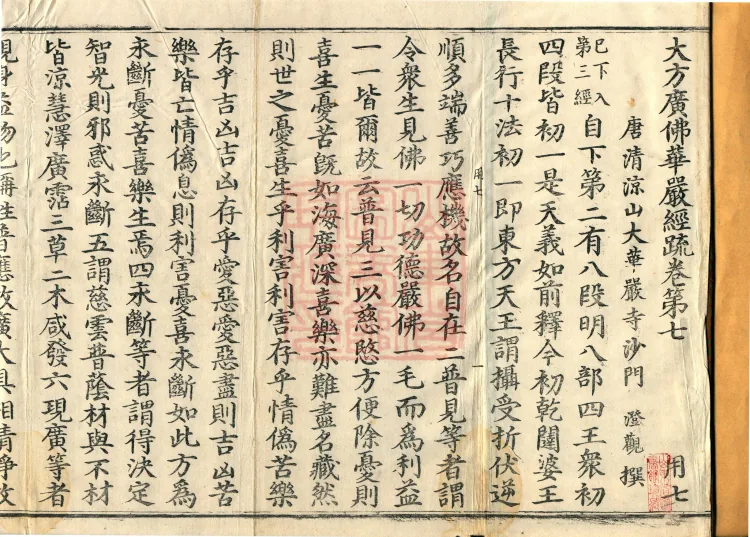 大方廣佛華嚴經疏卷第七 用七
唐清涼山大華嚴寺沙門 澄觀 撰
已下入
第三經
自下第二有八段明八部四王衆初
四段皆初一是天義如前釋今初乾闥婆王
長行十法初一即東方天王謂攝受折伏逆
用七 一
順多端善巧應機故名自在二普見等者謂
令衆生見佛一切功德嚴佛一毛而爲利益
一一皆爾故云普見三以慈愍方便除憂則
喜生憂苦旣如海廣深喜樂亦難盡名藏然
則世之憂喜生乎利害利害存乎情僞苦樂
存乎吉凶吉凶存乎愛惡愛惡盡則吉凶苦
樂皆亡情僞息則利害憂喜永斷如此方爲
永斷憂苦喜樂生焉四永斷等者謂得決定
智光則邪惑永斷五謂慈雲普蔭材與不材
皆涼慧澤廣霑三草二木咸發六現廣等者
現身益物也稱性普應故廣大具相清淨故